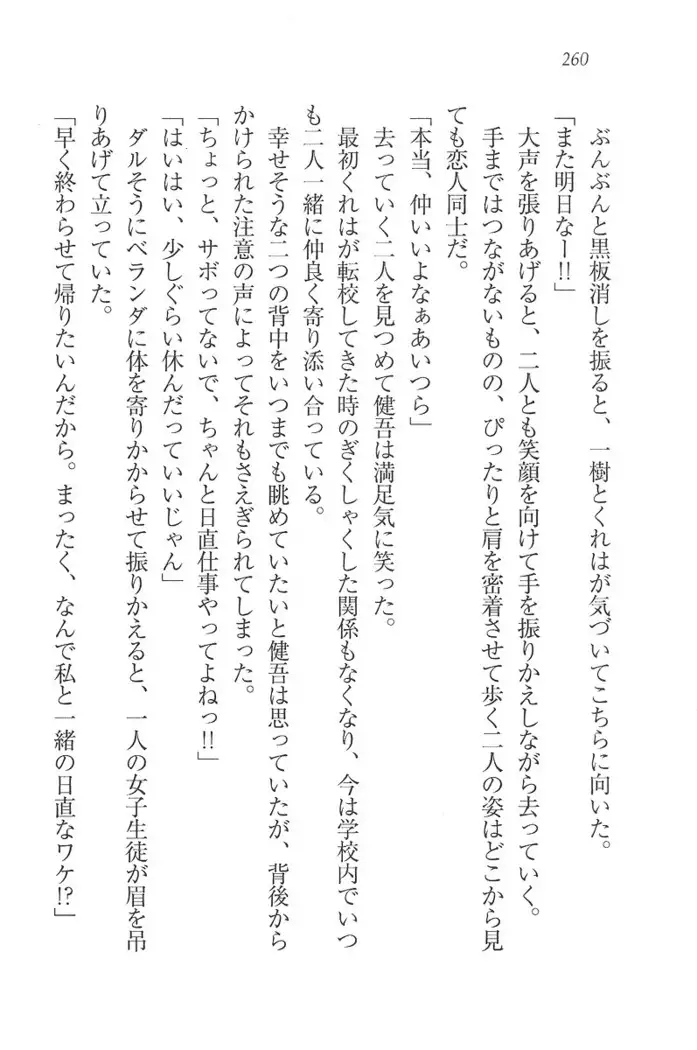 260
ぶんぶんと黒板消しを振ると、一樹とくれはが気づいてこちらに向いた。
「また明日なー!!」
大声を張りあげると、二人とも笑顔を向けて手を振りかえしながら去っていく。
手まではつながないものの、ぴったりと肩を密着させて歩く二人の姿はどこから見
ても恋人同士だ。
「本当、仲いいよなぁあいつら」
去っていく二人を見つめて健吾は満足気に笑った。
最初くれはが転校してきた時のぎくしゃくした関係もなくなり、今は学校内でいつ
も二人一緒に仲良く寄り添い合っている。
幸せそうな二つの背中をいつまでも眺めていたいと健吾は思っていたが、背後から
かけられた注意の声によってそれもさえぎられてしまった。
「ちょっと、サボってないで、ちゃんと日直仕事やってよねっ!!」
「はいはい、少しぐらい休んだっていいじゃん」
ダルそうにベランダに体を寄りかからせて振りかえると、一人の女子生徒が眉を吊
りあげて立っていた。
「早く終わらせて帰りたいんだから。まったく、なんで私と一緒の日直なワケ!?」